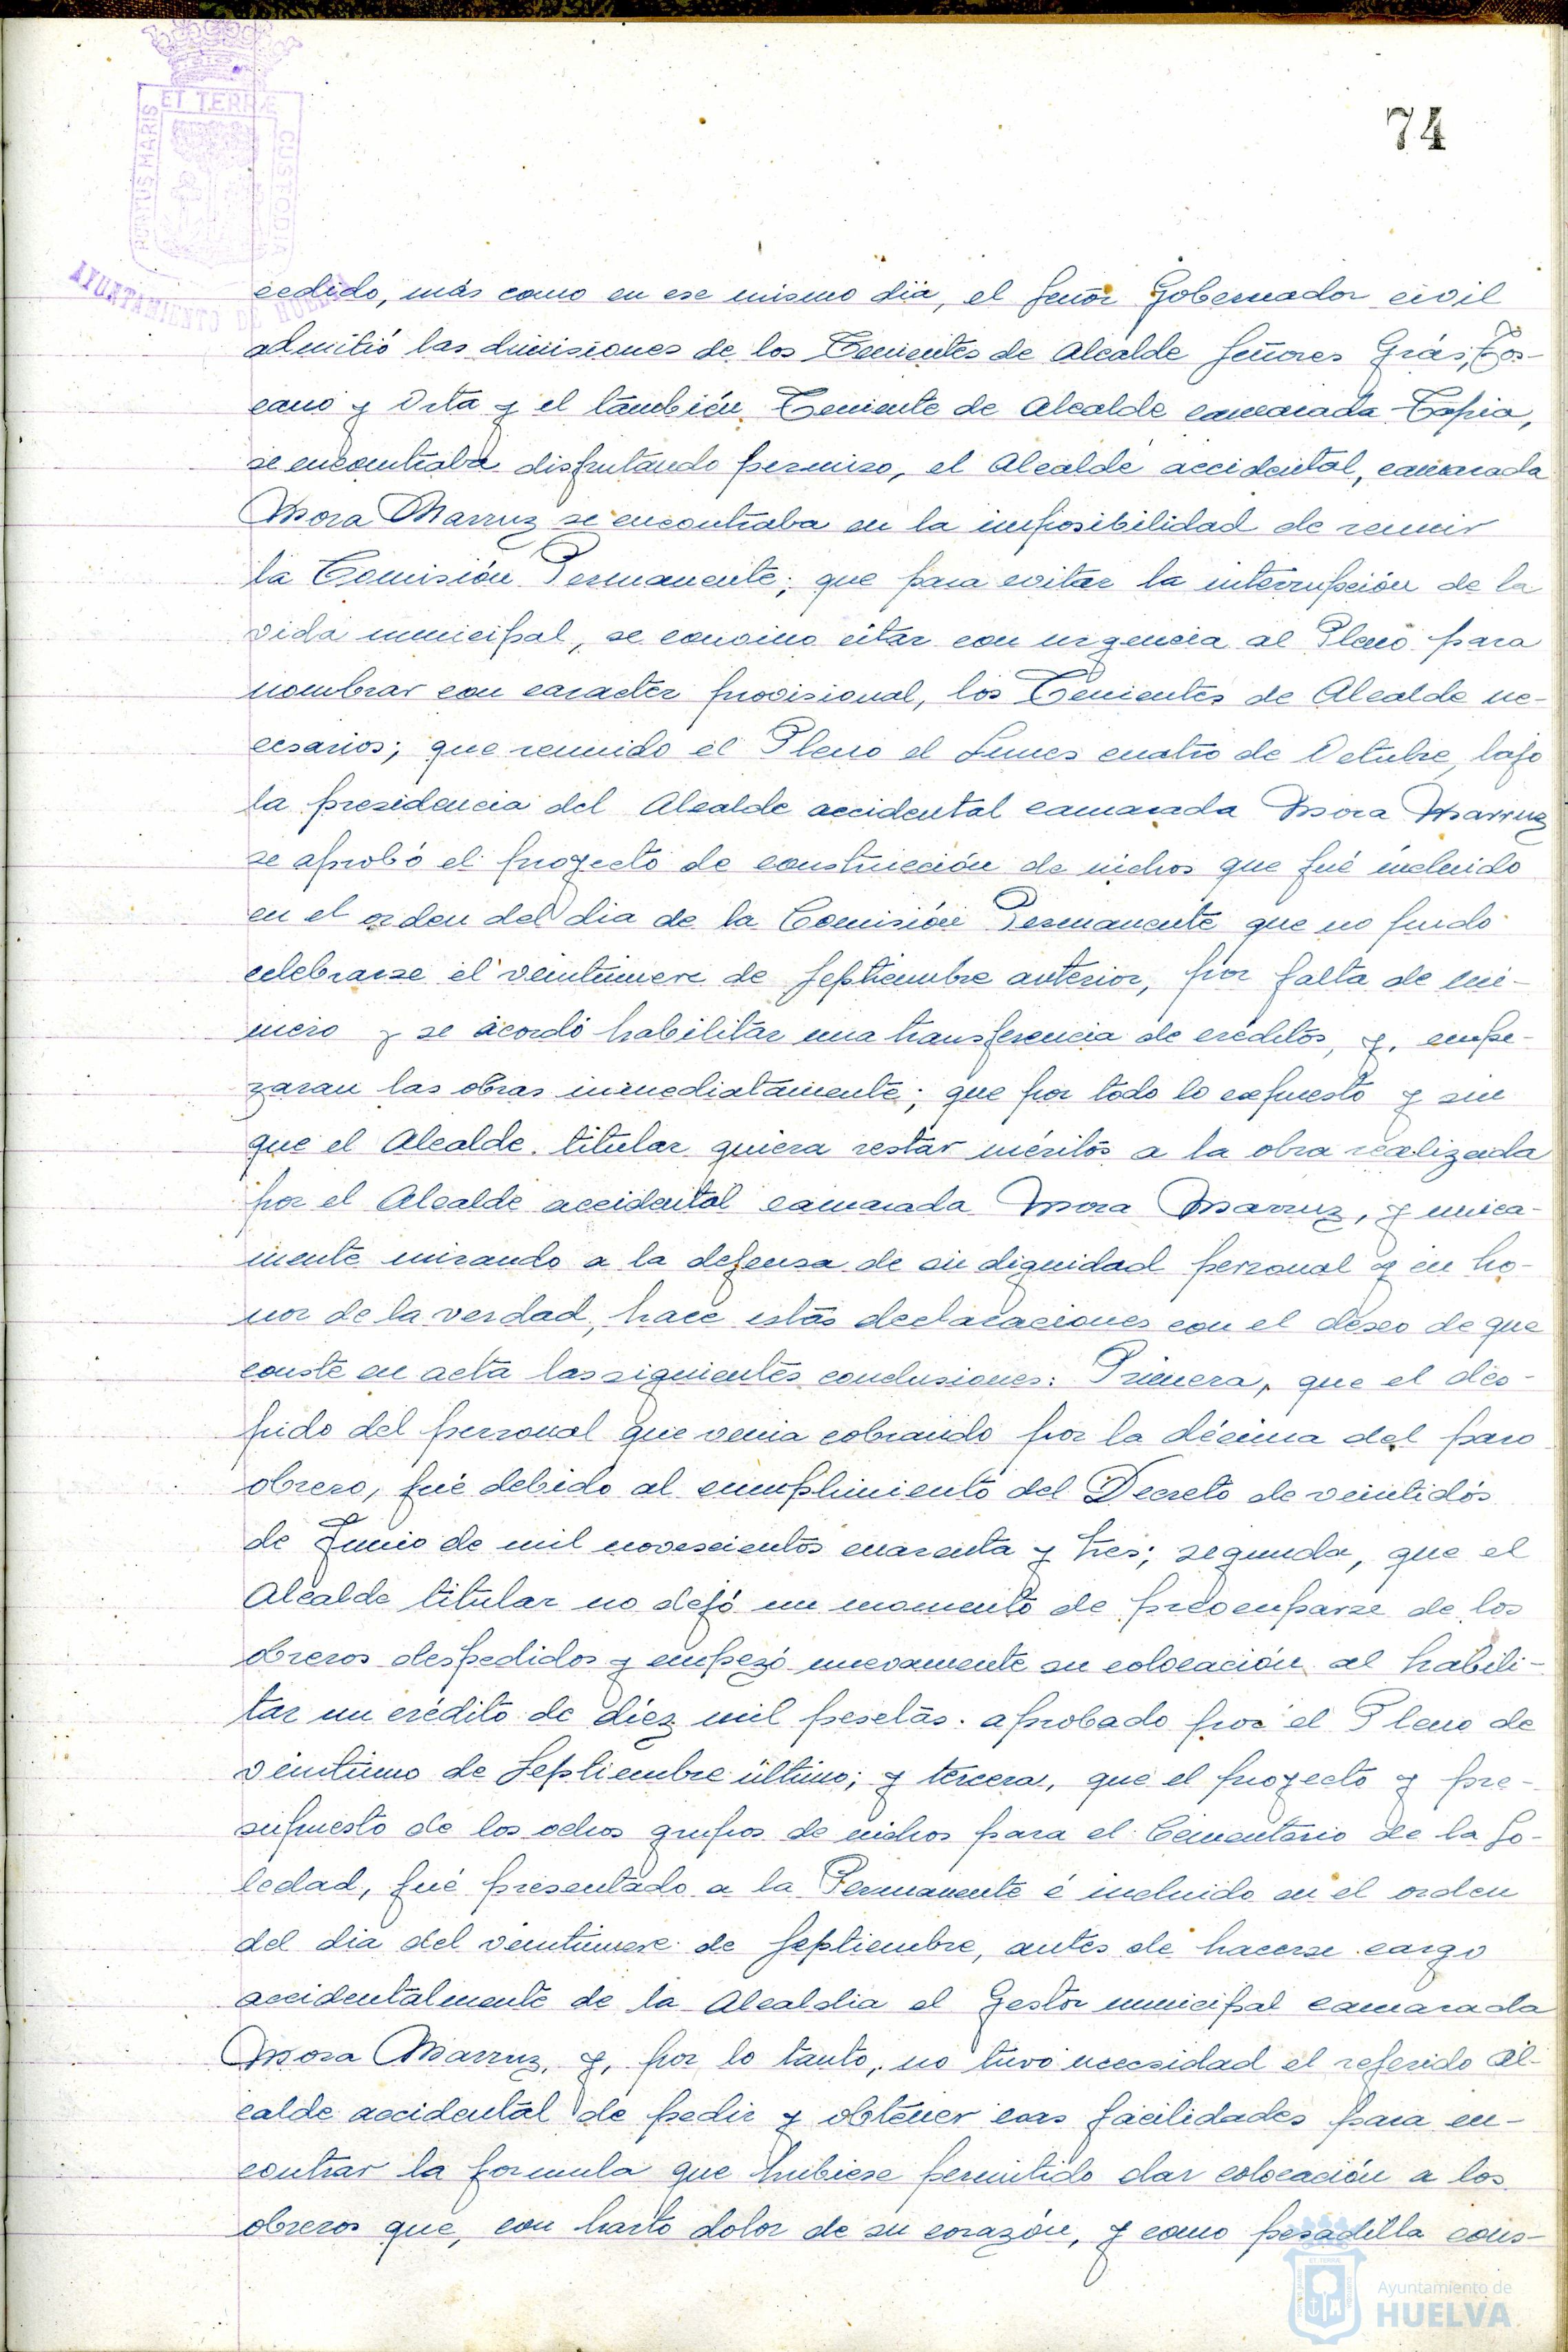 74
PORTUS MARIS
ET TERRÆ
CUSTODIA
AYUNTAMIENTO DE HUELVA
cedido, más como en ese mismo dia, el Señor Gobernador civil
admitió las dimisiones de los Tenientes de Alcalde Señores Grás, Tos-
cano y Orta y el también Teniente de Alcalde camarada Tapia,
se encontraba disfrutando permiso, el Alcalde accidental, camarada
Mora Marruz se encontraba en la imposibilidad de reunir
la Comisión Permanente; que para evitar la interrupción de la
vida municipal, se convino citar con urgencia al Pleno para
nombrar con caracter provisional, los Tenientes de Alcalde ne-
cesarios; que reunido el Pleno el Lunes cuatro de Octubre, bajo
la presidencia del Alcalde accidental camarada Mora Marruz
se aprobó el proyecto de construcción de nichos que fué incluido
en el orden del dia de la Comisión Permanente que no pudo
celebrarse el veintinueve de Septiembre anterior, por falta de nú-
mero y se acordó habilitar una transferencia de créditos, y, empe-
zaran las obras inmediatamente; que por todo lo expuesto y sin
que el Alcalde titular quiera restar méritos a la obra realizada
por el Alcalde accidental camarada Mora Marruz, y unica-
mente mirando a la defensa de su dignidad personal y en ho-
nor de la verdad, hace estas declaraciones con el deseo de que
conste en acta las siguientes conclusiones: Primera, que el des-
pido del personal que venia cobrando por la décima del paro
obrero, fué debido al cumplimiento del Decreto de veintidós
de Junio de mil novescientos cuarenta y tres; segunda, que el
Alcalde titular no dejó un momento de preocuparse de los
obreros despedidos y empezó nuevamente su colocación al habili-
tar un crédito de diez mil pesetas aprobado por el Pleno de
veintiuno de Septiembre último; y tercera, que el proyecto y pre-
supuesto de los ochos grupos de nichos para el Cementerio de la So-
ledad, fué presentado a la Permanente é incluido en el orden
del dia del veintinueve de Septiembre, antes de hacerse cargo
accidentalmente de la Alcaldia el Gestor municipal camarada
Mora Marruz, y, por lo tanto, no tuvo necesidad el referido Al-
calde accidental de pedir y obtener esas facilidades para en-
contrar la formula que hubiese permitido dar colocación a los
obreros que, con harto dolor de su corazón, y como pesadilla cons-
Ayuntamiento de
HUELVA